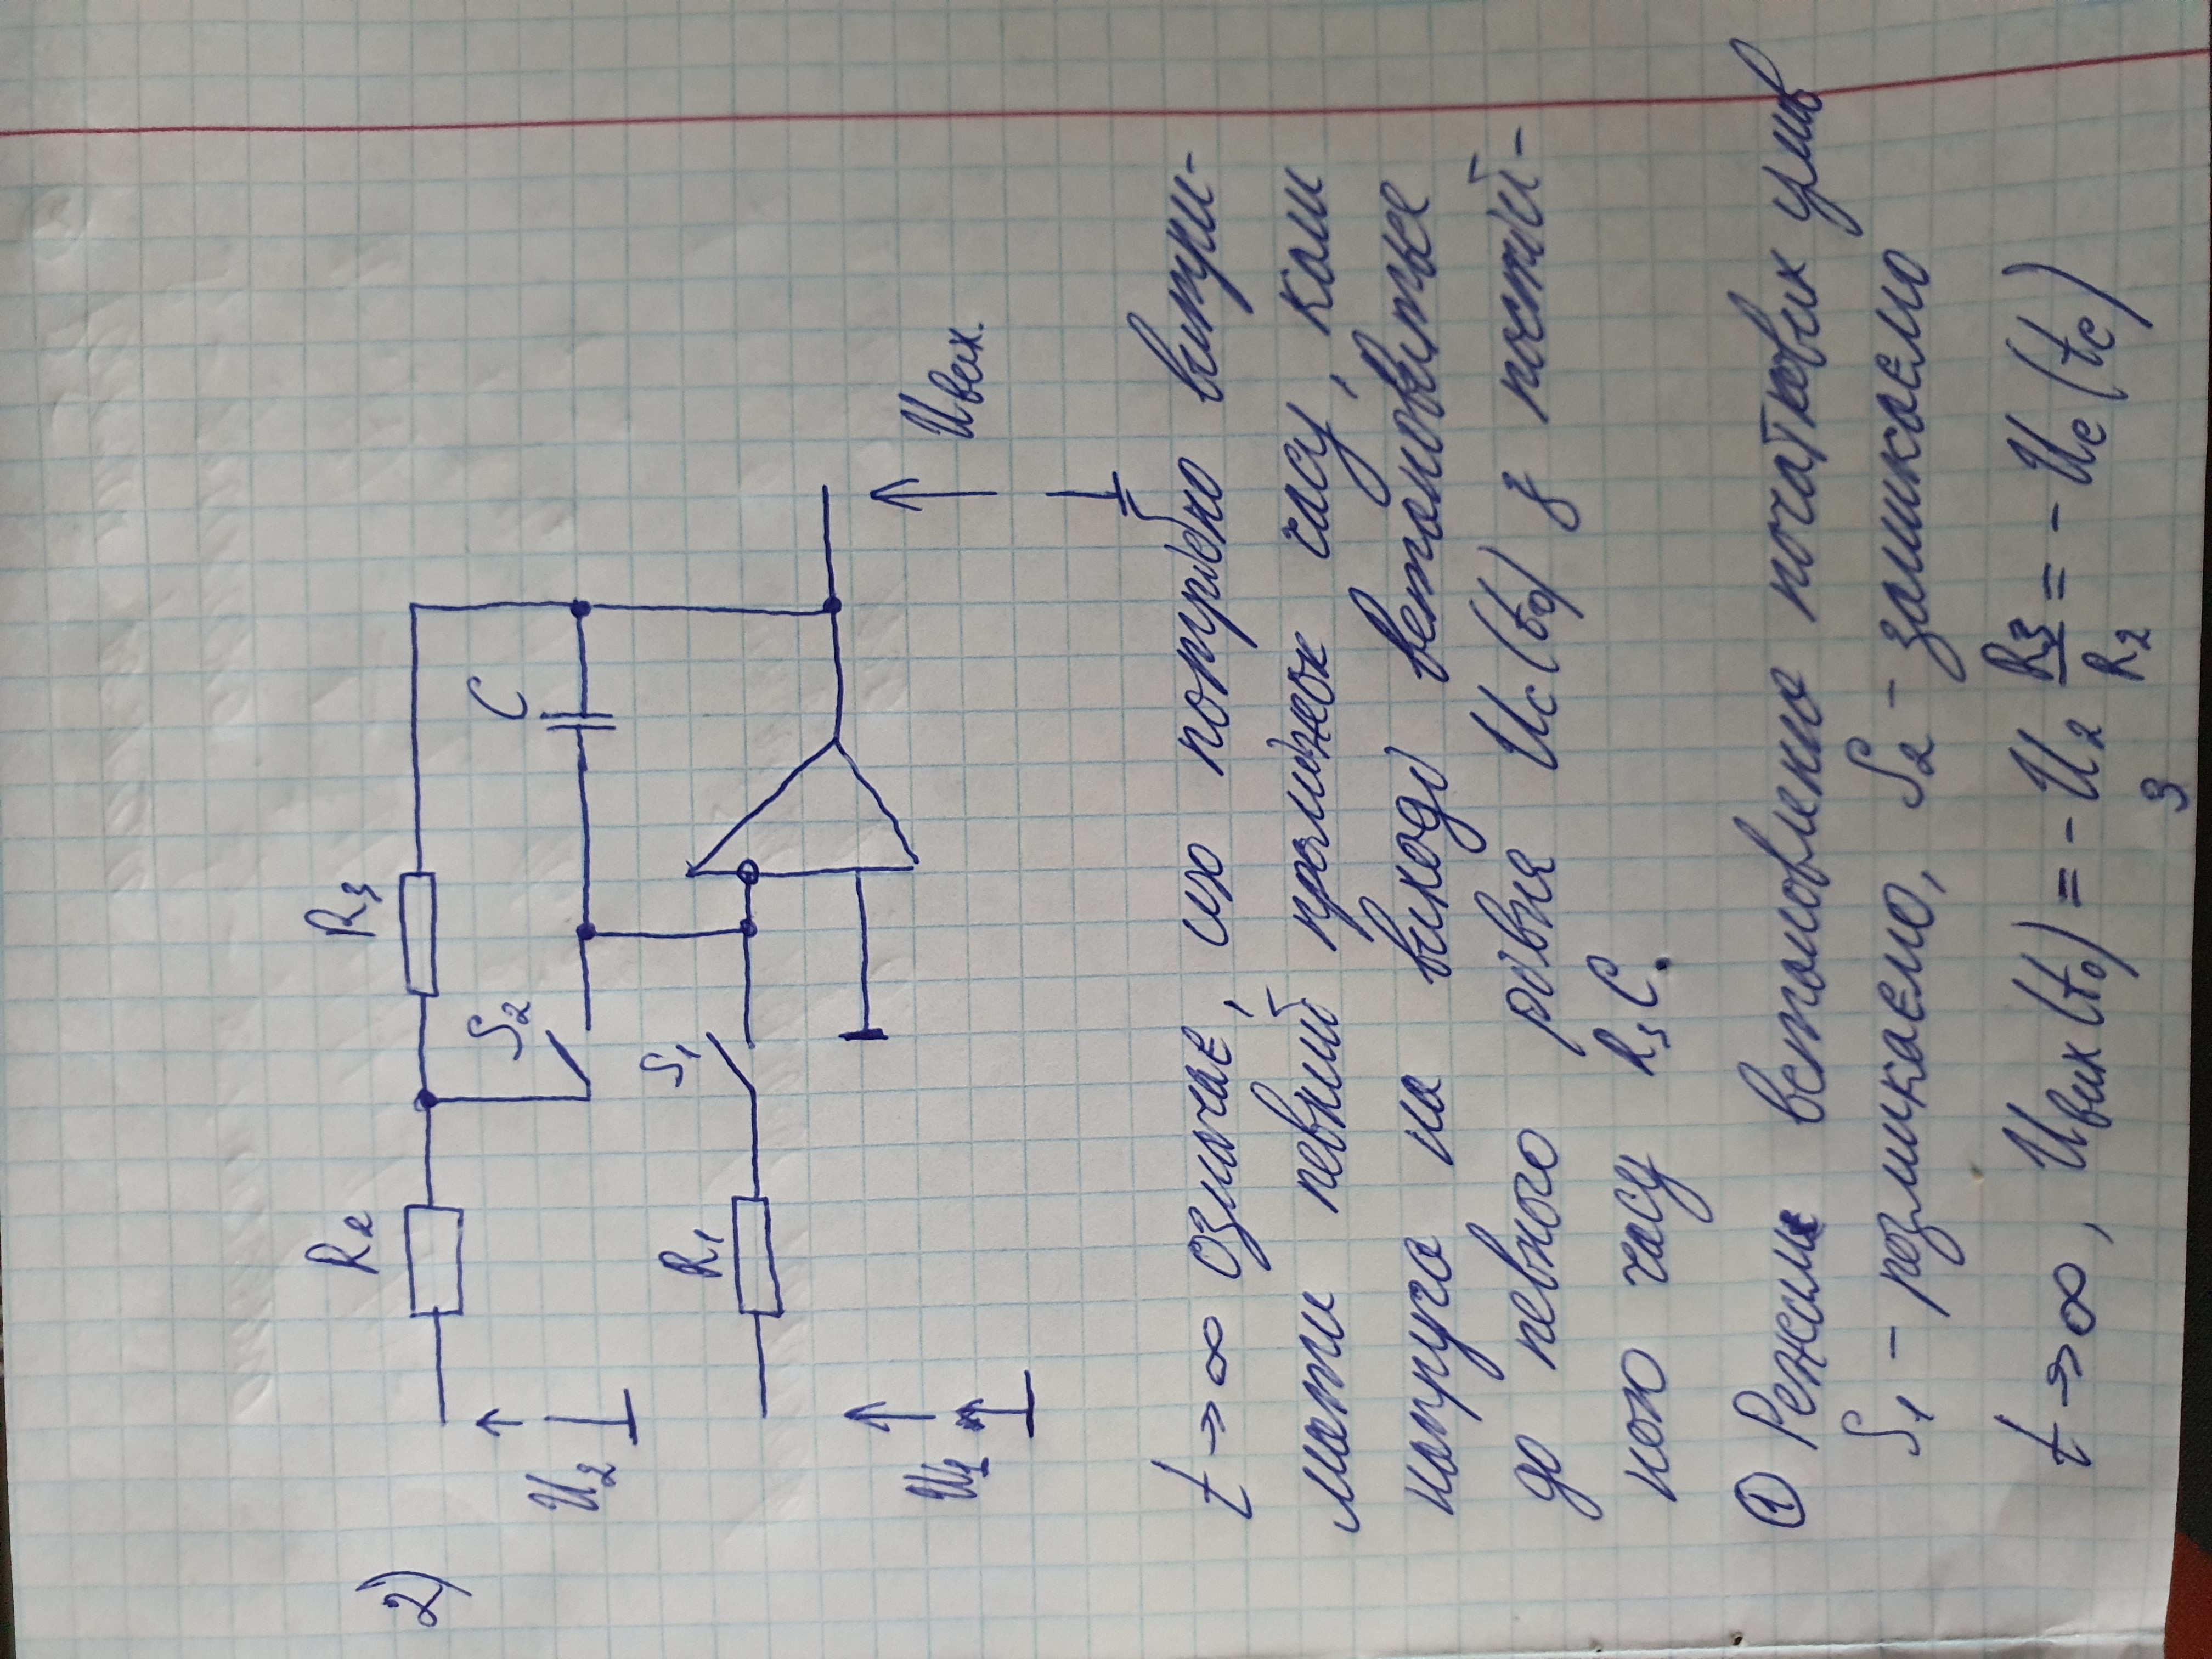 2)
R2
R3
S2
C
U2
S1
R1
U1
Uвих.
t→∞ означає, що потрібно витри-
мати певний проміжок часу, коли
напруга на виході встановиться
до певного рівня Uc(t0) з постій-
ною часу R3C.
① Режим встановлення початкових умов
S1 - розмикаємо, S2 - замикаємо
t→∞, Uвих(t0) = -U2 R3/R2 = -Uc(tc)
3